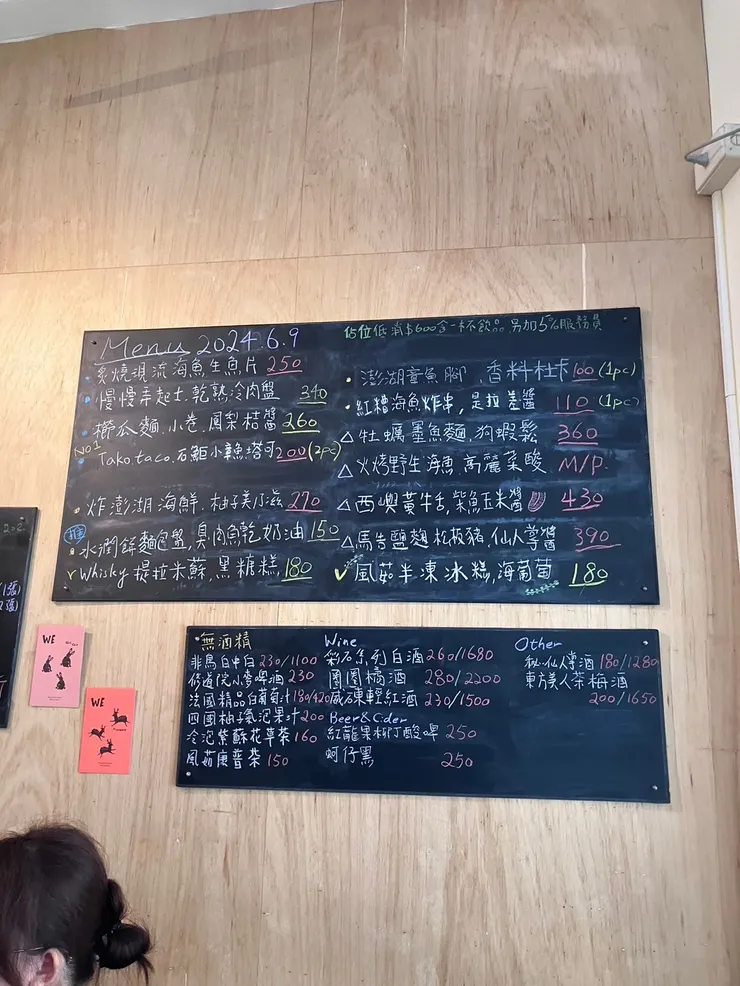 Menu 2024.6.9
佔位低消$600含一杯飲品 另加5%服務費
炙燒現流海魚生魚片 250
慢慢弄起士.乾熟冷肉盤 340
櫛瓜麵.小卷.鳳梨桔醬 260
NO1
Tako.taco.石鮔小章魚塔可 200 (2pc)
炸澎湖海鮮.柚子美乃滋 270
水潤餅麵包盤,臭肉魚乾奶油 150
Whisky提拉米蘇,黑糖糕 180
澎湖章魚腳.香料 100 (1pc)
紅糟海魚炸串,是拉差醬 110 (1pc)
△ 牡蠣墨魚麵.狗蝦鬆 360
△ 火烤野生海魚.高麗菜酸 M/P.
△ 西嶼黃牛舌,柴魚玉米醬 430
△ 馬告鹽麴松板豬,仙人掌醬 390
風茹半凍冰糕,海葡萄 180
無酒精
非馬白中白 230/1100
修道院小麥啤酒 230
法國精品白葡萄汁 180/420
四國柚子氣泡果汁 200
冷泡紫蘇花草茶 160
風茹康普茶 150
Wine
彩石系列白酒 260/1680
圈圈橘酒 280/2200
威石東輕紅酒 230/1500
Beer&Cider
紅龍果柳丁酸啤 250
蚵仔黑 250
Other
秘.仙人掌酒 180/1280
東方美人茶梅酒
200/1650
WE
WE